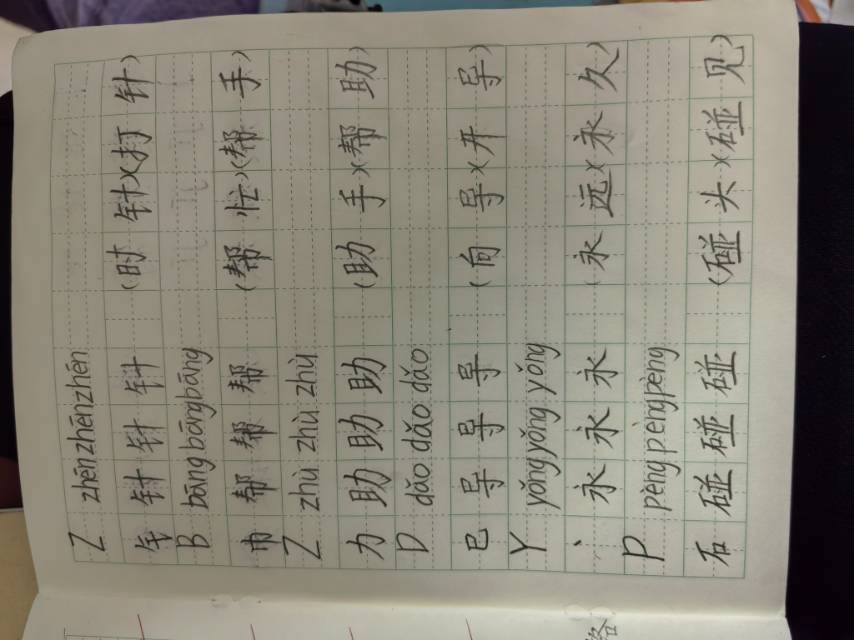 Z zhēn zhēn zhēn
钅 针 针 针 (时针)(打针)
B bāng bāng bāng
巾 帮 帮 帮 (帮忙)(帮手)
Z zhù zhù zhù
力 助 助 助 (助手)(帮助)
D dǎo dǎo dǎo
巳 导 导 导 (向导)(开导)
Y yǒng yǒng yǒng
丶 永 永 永 (永远)(永久)
P pèng pèng pèng
石 碰 碰 碰 (碰头)(碰见)